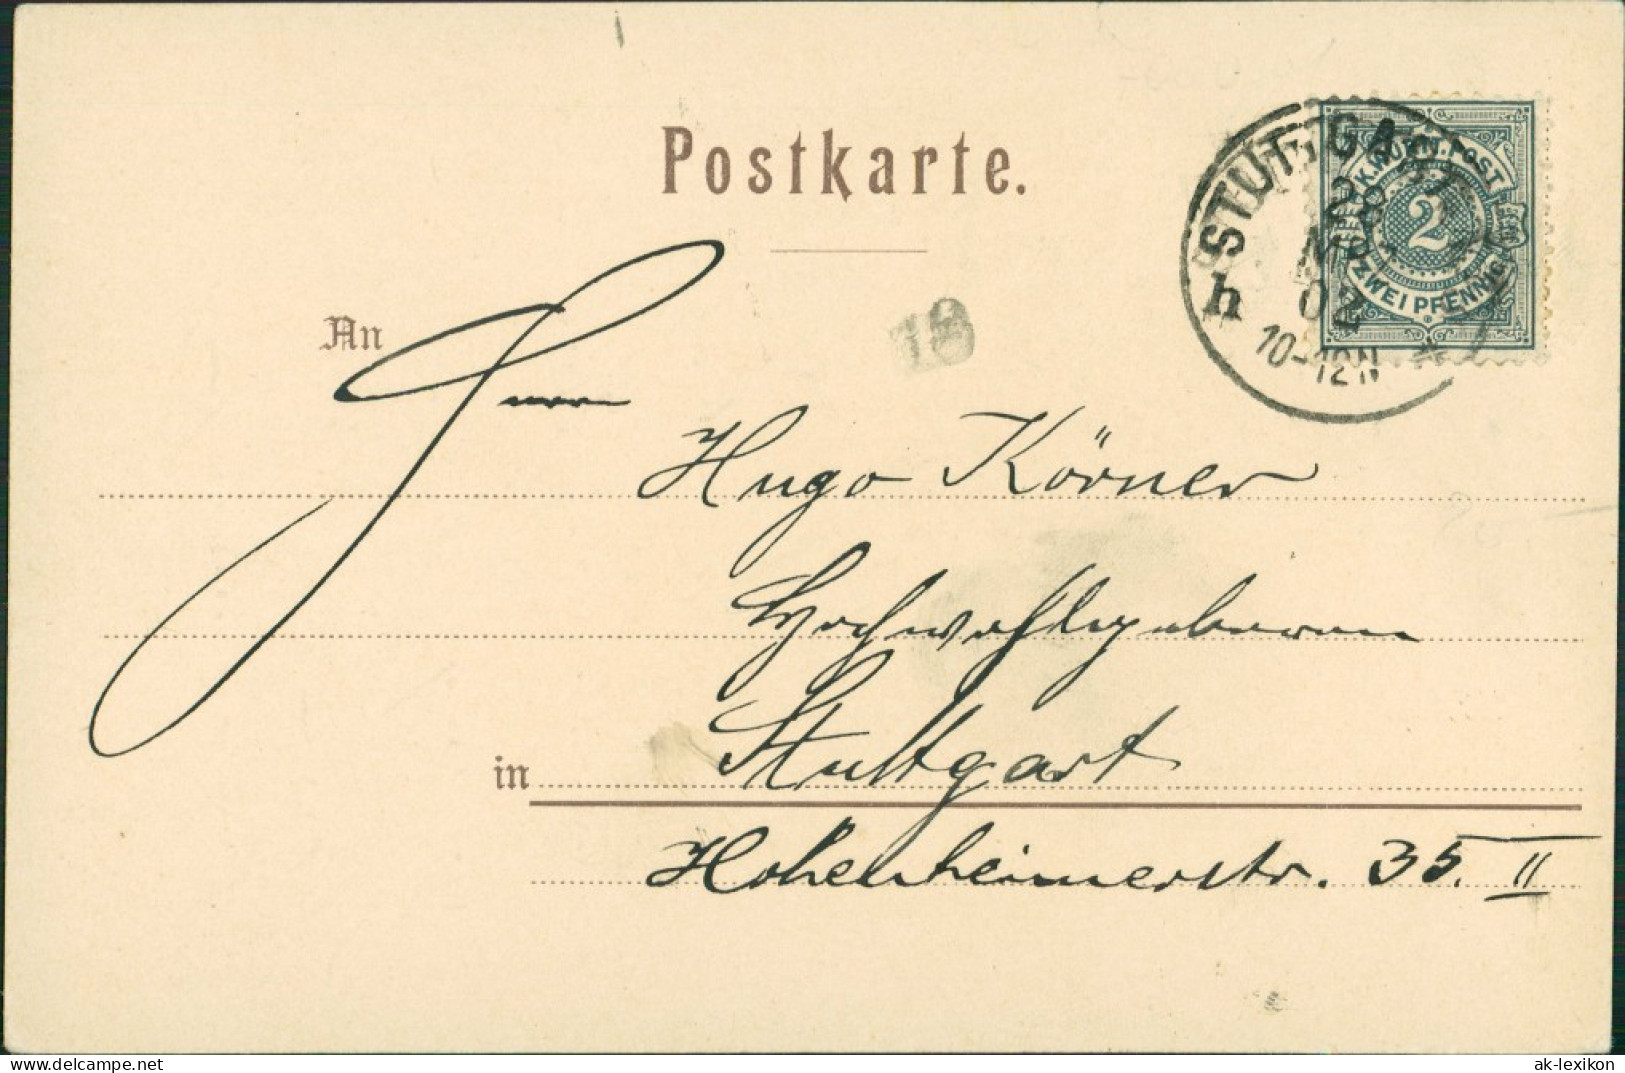 Postkarte.
STUTTGART
28
MRZ
02
h
10-12N
K.WÜRT.POST
2
ZWEI PFENNIG
An
Herrn
19
Hugo Körner
Hochwohlgeboren
in Stuttgart
Hohenheimerstr. 35. II
www.delcampe.net
ak-lexikon